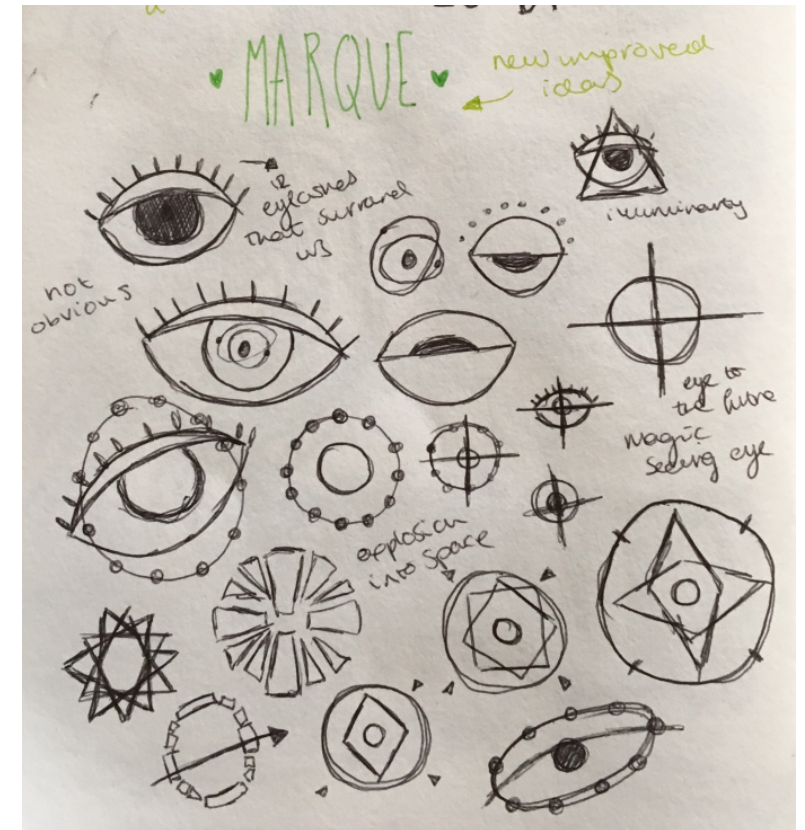 MARQUE
new improved
ideas
12
eyelashes
that surround
us
illuminarty
not
obvious
eye to
the future
magic
seeing eye
explosion
into space